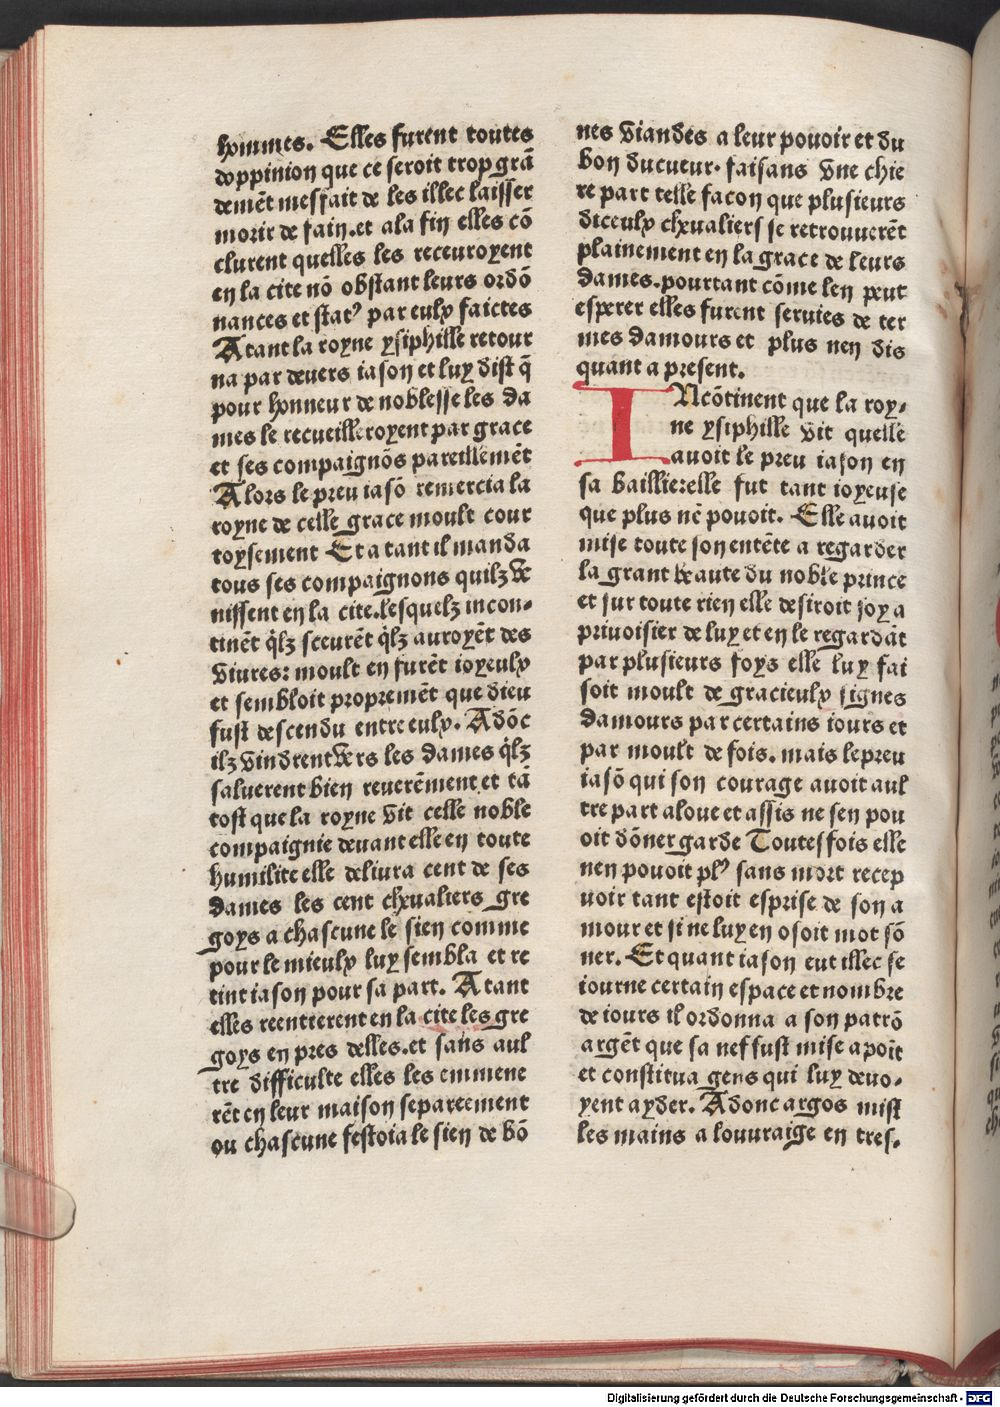 hommes. Elles furent toutes
doppinion que ce seroit trop grã
demẽt mesfait de les illec laisser
morir de fain.et ala fin elles cõ
clurent quelles les receuroyent
en la cite nõ obstant leurs ordõ
nances et statꝰ par eulx faictes
Atant la royne ysiphille retour
na par devers iason et luy dist q̃
pour honneur de noblesse les da
mes le recueilleroyent par grace
et ses compaignõs pareillemẽt
Alors le preu iasõ remercia la
royne de celle grace moult cour
toysement Et a tant il manda
tous ses compaignons quilz ve
nissent en la cite.lesquelz incon-
tinẽt q̃lz sceurẽt q̃lz auroyẽt des
viures: moult en furẽt ioyeulx
et sembloit propremẽt que dieu
fust descendu entre eulx. Adõc
ilz vindrent vers les dames q̃lz
saluerent bien reuerẽment et tã
tost que la royne vit celle noble
compaignie deuant elle en toute
humilite elle deliura cent de ses
dames les cent chevaliers gre
goys a chascune le sien comme
pour le mieulx luy sembla et re
tint iason pour sa part. A tant
elles reentrerent en la cite les gre
goys en pres delles.et sans aul
tre difficulte elles les emmene
rẽt en leur maison separeement
ou chascune festoia le sien de bõ
nes viandes a leur pouoir et du
bon ducueur. faisans vne chie
re part telle facon que plusieurs
diceulx chevaliers se retrouuerẽt
plainement en la grace de leurs
dames.pourtant cõme len peut
esperer elles furent seruies de ter
mes damours et plus nen dis
quant a present.
INcõtinent que la roy-
ne ysiphille vit quelle
auoit le preu iason en
sa baillierelle fut tant ioyeuse
que plus nẽ pouoit. Elle auoit
mise toute son entẽte a regarder
la grant beaute du noble prince
et sur toute rien elle desiroit soy a
priuoisier de luy et en le regardãt
par plusieurs foys elle luy fai
soit moult de gracieulx signes
damours par certains iours et
par moult de fois. mais le preu
iasõ qui son courage auoit aul
tre part aloue et assis ne sen pou
oit dõner garde Toutesfois elle
nen pouoit plꝰ sans mort recep
uoir tant estoit esprise de son a
mour et si ne luy en osoit mot sõ
ner. Et quant iason eut illec se
iourne certain espace et nombre
de iours il ordonna a son patrõ
argẽt que sa nef fust mise a poĩt
et constitua gens qui luy deuo-
yent ayder. Adonc argos mist
les mains a louuraige en tres.
Digitalisierung gefördert durch die Deutsche Forschungsgemeinschaft - DFG